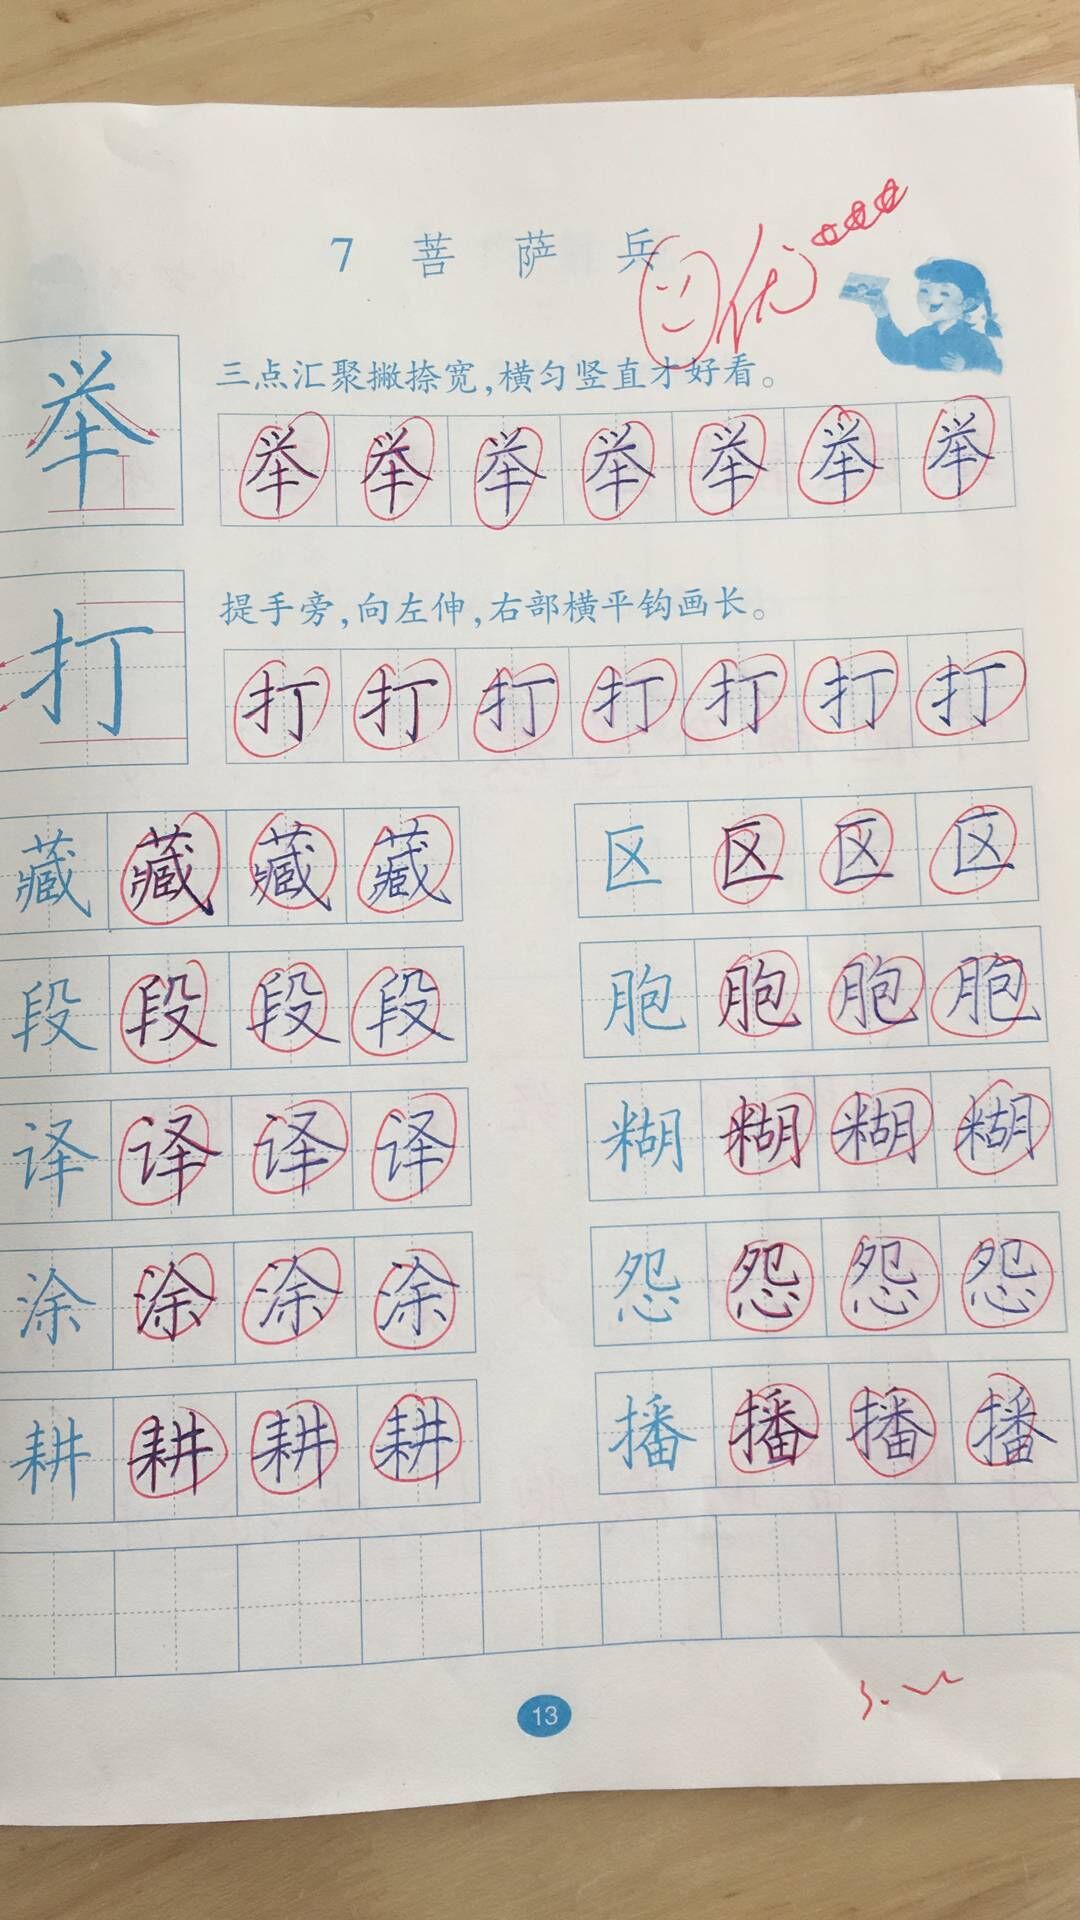 7 菩萨兵
优
三点汇聚撇捺宽,横匀竖直才好看。
举 举 举 举 举 举 举 举
提手旁,向左伸,右部横平钩画长。
打 打 打 打 打 打 打 打
藏 藏 藏 藏 区 区 区 区
段 段 段 段 胞 胞 胞 胞
译 译 译 译 糊 糊 糊 糊
涂 涂 涂 涂 怨 怨 怨 怨
耕 耕 耕 耕 播 播 播 播
13